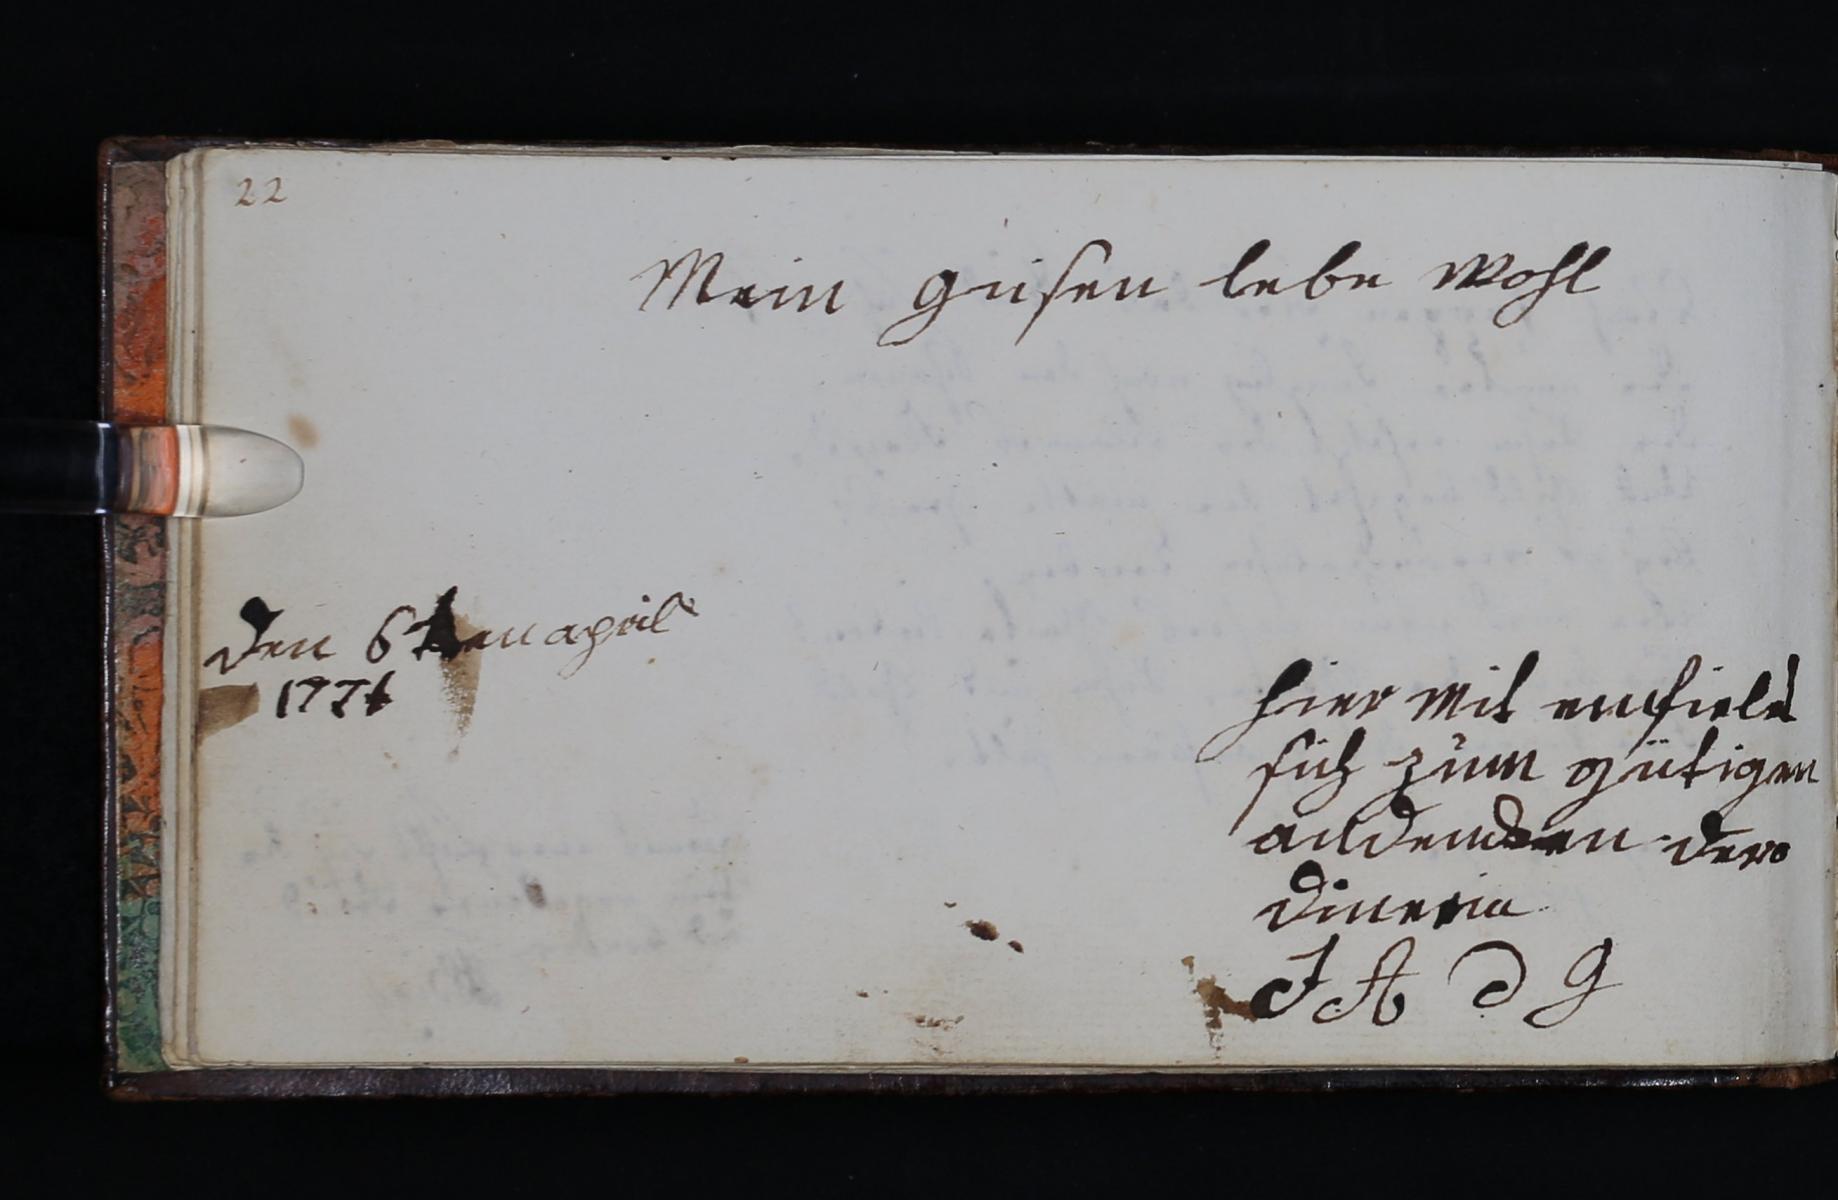 22
Mein gusen lebe wohl
den 6ten april
1771
hier mit emfield
sich zum gütigen
andencken dero
dinerin
J A D G